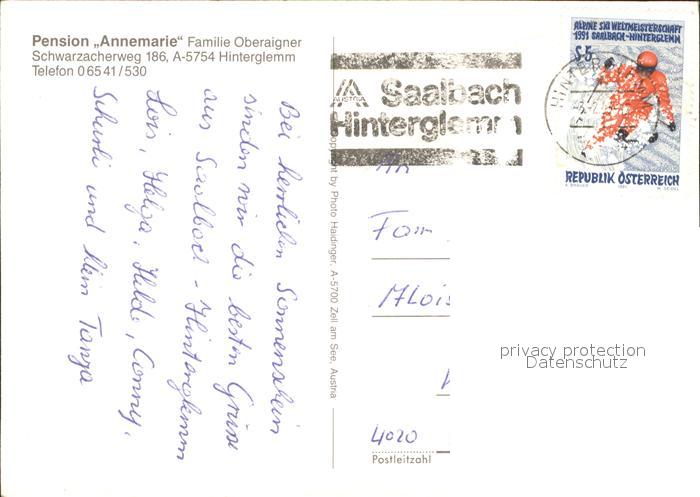 Pension „Annemarie“ Familie Oberaigner
Schwarzacherweg 186, A-5754 Hinterglemm
Telefon 0 65 41 / 530
Bei herrlichen Sonnenschein
senden wir die besten Grüsse
aus Saalbach - Hinterglemm
Lois, Helga, Hilde, Conny,
Schurli und klein Tanja
Copyright by Photo Haidinger, A-5700 Zell am See, Austria
AUSTRIA
Saalbach
Hinterglemm
ALPINE SKI WELTMEISTERSCHAFT
1991 SAALBACH-HINTERGLEMM
S 5
REPUBLIK ÖSTERREICH
1991
An
Fam
Alois
4020
Postleitzahl
privacy protection
Datenschutz